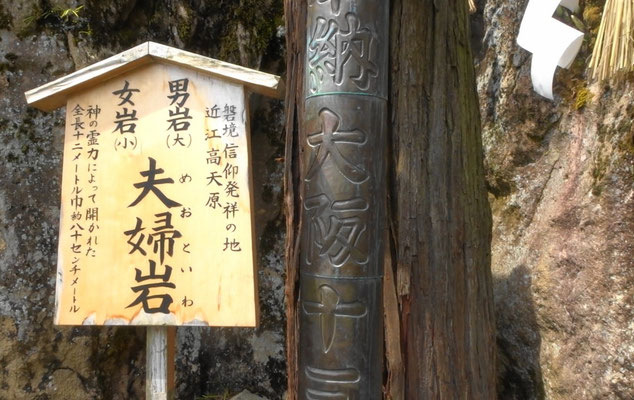 磐境信仰発祥の地
近江高天原
男岩(大)
女岩(小)
夫婦岩
めおといわ
神の霊力によって開かれた
全長十二メートル巾約八十センチメートル
納大阪十三